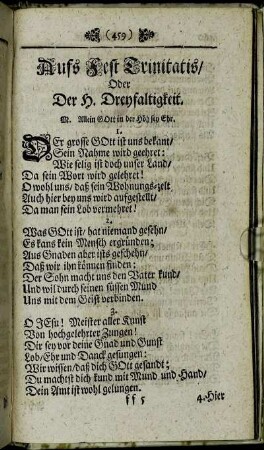 (459)
Aufs Fest Trinitatis/
Oder
Der H. Dreyfaltigkeit.
M. Allein GOtt in der Höh sey Ehr.
1.
DEr grosse GOtt ist uns bekant/
Sein Nahme wird geehret:
Wie selig ist doch unser Land/
Da sein Wort wird gelehret!
O wohl uns/ daß sein Wohnungs-zelt
Auch hier bey uns wird aufgestellt/
Da man sein Lob vermehret!
2.
Was GOtt ist/ hat niemand gesehn/
Es kans kein Mensch ergründen;
Aus Gnaden aber ists geschehn/
Daß wir ihn können finden:
Der Sohn macht uns den Vater kund/
Und wil durch seinen süssen Mund
Uns mit dem Geist verbinden.
3.
O JEsu! Meister aller Kunst
Von hochgelehrter Zungen!
Dir sey vor deine Gnad und Gunst
Lob/ Ehr und Danck gesungen:
Wir wissen/ daß dich GOtt gesandt;
Du machst dich kund mit Mund und Hand/
Dein Amt ist wohl gelungen.
ff 5
4. Hier